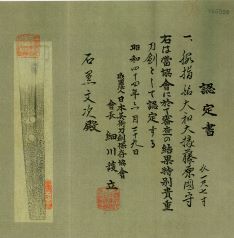 認定書
一、脇指 銘 大和大掾藤原國守
長一尺七寸
右は當協會に於て審査の結果特別貴重
刀剣として認定する
昭和四十四年六月二十九日
財團法人日本美術刀剣保存協會
會長 細川護立
石黒文次殿